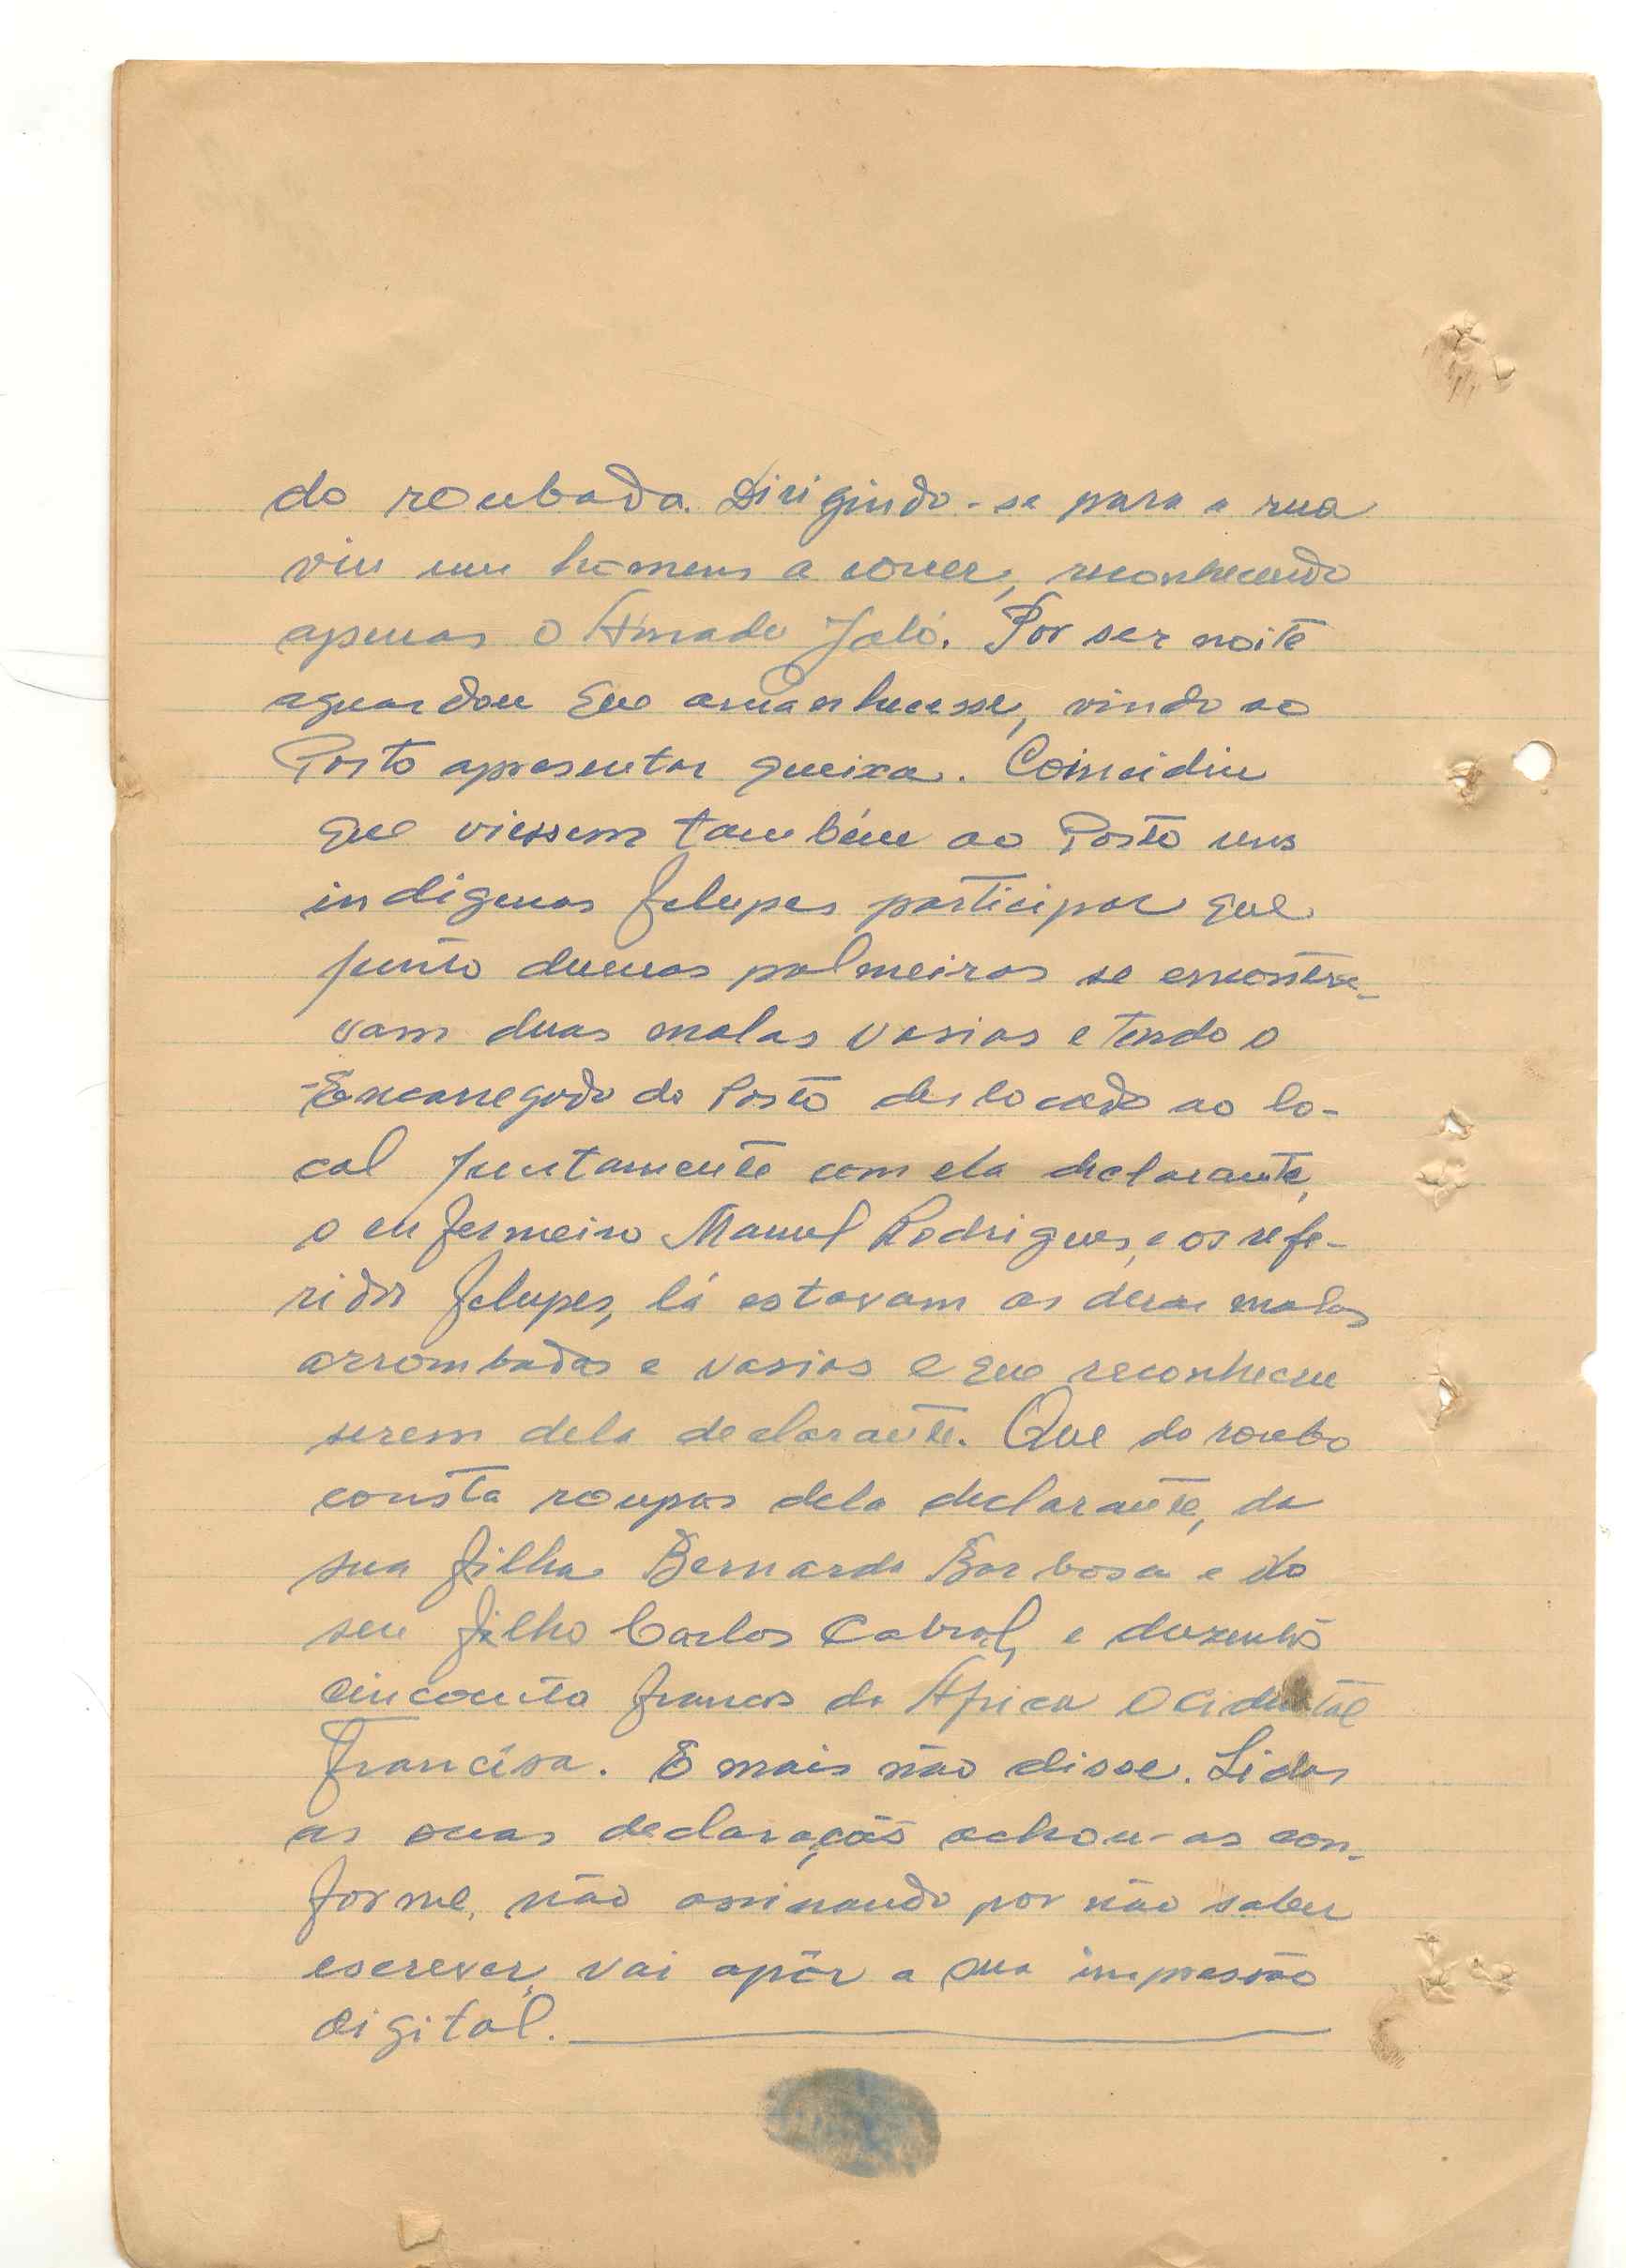 do roubada. Dirigindo-se para a rua
viu uns homens a correr, reconhecendo
apenas o Amado Jaló. Por ser noite
aguardou que amanhecesse, vindo ao
Posto apresentar queixa. Coincidiu
que viessem também ao Posto uns
indigenas felupes participar que
junto dumas palmeiras se encontra-
vam duas malas vasias e tendo o
Encarregado do Posto deslocado ao lo-
cal juntamente com ela declarante,
o enfermeiro Manuel Rodrigues, e os refe-
ridos felupes, lá estavam as duas malas
arrombadas e vasias e que reconheceu
serem dela declarante. Que do roubo
consta roupas dela declarante, da
sua filha Bernarda Barbosa e do
seu filho Carlos Cabral, e duzentos
cincoenta francos da Africa Ocidental
Francêsa. E mais não disse. Lidas
as suas declarações achou-as con-
forme, não assinando por não saber
escrever, vai apôr a sua impressão
digital.